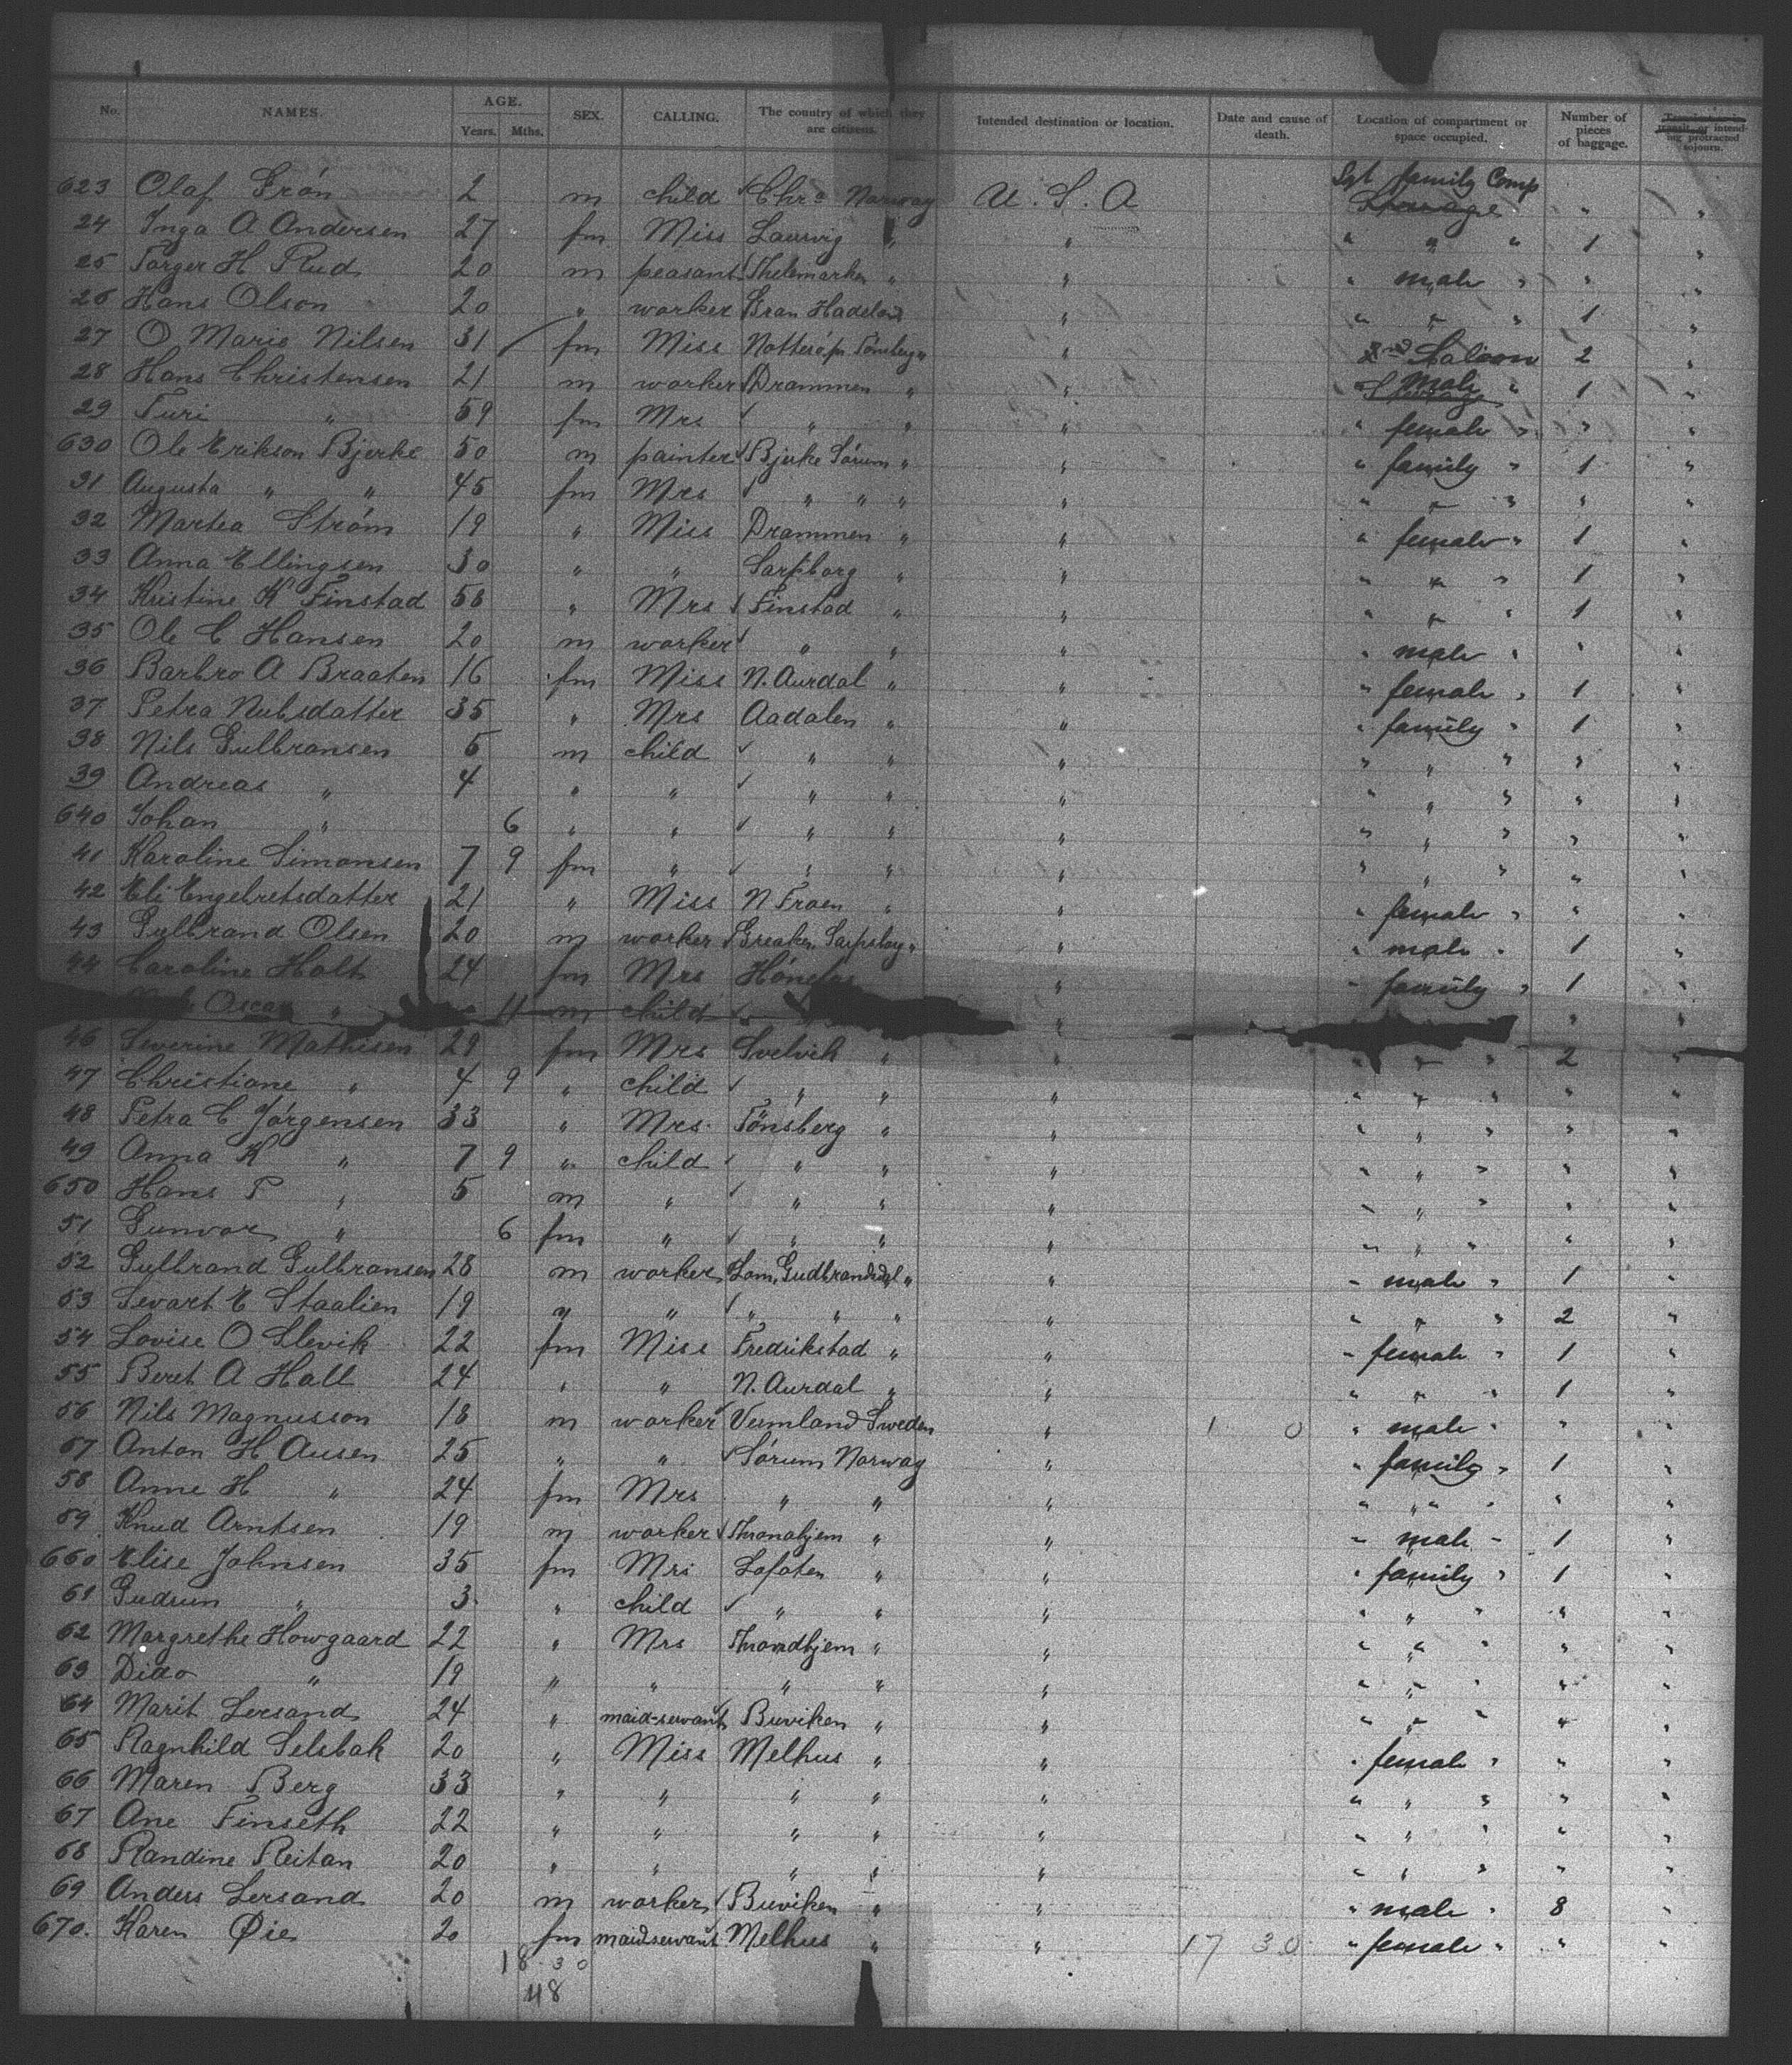 No. NAMES. AGE. Years. Mths. SEX. CALLING. The country of which they are citizens. Intended destination or location. Date and cause of death. Location of compartment or space occupied. Number of pieces of baggage.
623 Olaf Grön 2 m child Chra Norway U. S. A family Comp "
24 Inga A Andersen 27 fm Miss Laurvig " " " " " 1 "
25 Torger H Rud 20 m peasant Thelemarken " " " male " " "
26 Hans Olson 20 " worker Gran Hadeland " " " " 1 "
27 O Marie Nilsen 31 fm Miss Nötterö pr Tönsberg " " 2nd Saloon 2 "
28 Hans Christensen 21 m worker Drammen " " " male " 1 "
29 Turi " 59 fm Mrs " " " " female " " "
630 Ole Erikson Bjerke 50 m painter Bjerke Sörum " " " family " 1 "
31 Augusta " " 45 fm Mrs " " " " " " " " "
32 Martea Ström 19 " Miss Drammen " " " female " 1 "
33 Anna Ellingsen 30 " " Sarpborg " " " " " 1 "
34 Kristine K Finstad 58 " Mrs Finstad " " " " " 1 "
35 Ole C Hansen 20 m worker " " " " male " " "
36 Barbro A Braaten 16 fm Miss N. Aurdal " " " female " 1 "
37 Petra Nubsdatter 35 " Mrs Aadalen " " " family " 1 "
38 Nils Gulbransen 5 m child " " " " " " " "
39 Andreas " 4 " " " " " " " " " "
640 Johan " 6 " " " " " " " " " "
41 Karoline Simonsen 7 9 fm " " " " " " " " "
42 Eli Engebretsdatter 21 " Miss N Fraen " " " female " " "
43 Gulbrand Olsen 20 m worker Greaker, Sarpsborg " " " male " 1 "
44 Caroline Holt 24 fm Mrs Hönefos " " family " 1
Oscar " 11 m child " "
46 Severine Mathisen 29 fm Mrs Svelvik " " " " " 2 "
47 Christiane " 4 9 " child " " " " " " " "
48 Petra C Jörgensen 33 " Mrs. Tönsberg " " " " " " "
49 Anna K " 7 9 " child " " " " " " " "
650 Hans P " 5 m " " " " " " " " "
51 Gunvor " 6 fm " " " " " " " " "
52 Gulbrand Gulbransen 28 m worker Lom, Gudbrandsdal " " " male " 1 "
53 Sevart E Staalien 19 " " " " " " " " " 2 "
54 Lovise O Slevik 22 fm Miss Fredrikstad " " " female " 1 "
55 Beret A Hall 24 " " N. Aurdal " " " " " 1 "
56 Nils Magnusson 18 m worker Vermland Sweden " 1 0 " male " " "
57 Anton H Ausen 25 " " Sörum Norway " " family " 1 "
58 Anne H " 24 fm Mrs " " " " " " " "
59 Knud Arntsen 19 m worker Thronohjem " " " male " 1 "
660 Elise Johnsen 35 fm Mrs Lofoten " " " family " 1 "
61 Gudrun " 3 " child " " " " " " " "
62 Margrethe Howgaard 22 " Mrs Throndhjem " " " " " " "
63 Dido " 19 " " " " " " " " " "
64 Marit Lersand 24 " maid-servant Buviken " " " " " " "
65 Ragnhild Selsbak 20 " Miss Melhus " " " female " " "
66 Maren Berg 33 " " " " " " " " " "
67 Ane Finseth 22 " " " " " " " " " "
68 Randine Reitan 20 " " " " " " " " " "
69 Anders Lersand 20 m worker Buviken " " " male " 8 "
670. Karen Øie 20 fm maidservant Melhus " " 17 30 " female " " "
18 30
48